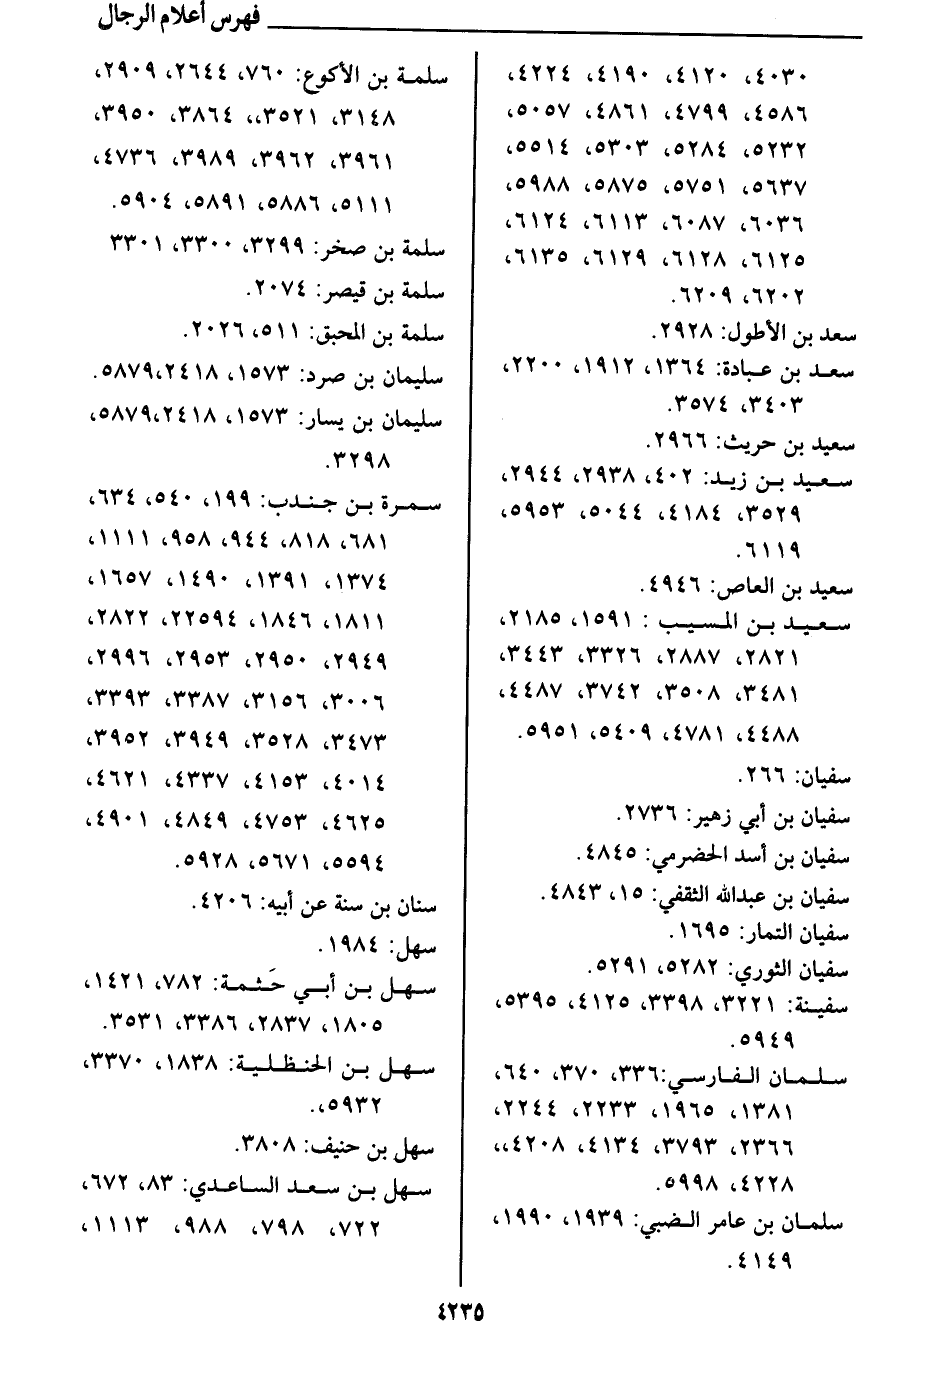 فهرس أعلام الرجال
٤٠٣٠، ٤١٢٠، ٤١٩٠، ٤٢٢٤،
٤٥٨٦، ٤٧٩٩، ٤٨٦١، ٥٠٥٧،
٥٢٣٢، ٥٢٨٤، ٥٣٠٣، ٥٥١٤،
٥٦٣٧، ٥٧٥١، ٥٨٧٥، ٥٩٨٨،
٦٠٣٦، ٦٠٨٧، ٦١١٣، ٦١٢٤،
٦١٢٥، ٦١٢٨، ٦١٢٩، ٦١٣٥،
٦٢٠٢، ٦٢٠٩.
سعد بن الأطول: ٢٩٢٨.
سعد بن عبادة: ١٣٦٤، ١٩١٢، ٢٢٠٠،
٣٤٠٣، ٣٥٧٤.
سعيد بن حريث: ٢٩٦٦.
سعيد بن زيد: ٤٠٢، ٢٩٣٨، ٢٩٤٤،
٣٥٢٩، ٤١٨٤، ٥٠٤٤، ٥٩٥٣،
٦١١٩.
سعيد بن العاص: ٤٩٤٦.
سعيد بن المسيب : ١٥٩١، ٢١٨٥،
٢٨٢١، ٢٨٨٧، ٣٣٢٦، ٣٤٤٣،
٣٤٨١، ٣٥٠٨، ٣٧٤٢، ٤٤٨٧،
٤٤٨٨، ٤٧٨١، ٥٤٠٩، ٥٩٥١.
سفيان: ٢٦٦.
سفيان بن أبي زهير: ٢٧٣٦.
سفيان بن أسد الحضرمي: ٤٨٤٥.
سفيان بن عبدالله الثقفي: ١٥، ٤٨٤٣.
سفيان التمار: ١٦٩٥.
سفيان الثوري: ٥٢٨٢، ٥٢٩١.
سفينة: ٣٢٢١، ٣٣٩٨، ٤١٢٥، ٥٣٩٥،
٥٩٤٩.
سلمان الفارسي:٣٣٦، ٣٧٠، ٦٤٠،
١٣٨١، ١٩٦٥، ٢٢٣٣، ٢٢٤٤،
٢٣٦٦، ٣٧٩٣، ٤١٣٤، ٤٢٠٨،،
٤٢٢٨، ٥٩٩٨.
سلمان بن عامر الضبي: ١٩٣٩، ١٩٩٠،
٤١٤٩.
سلمة بن الأكوع: ٧٦٠، ٢٦٤٤، ٢٩٠٩،
٣١٤٨، ٣٥٢١،، ٣٨٦٤، ٣٩٥٠،
٣٩٦١، ٣٩٦٢، ٣٩٨٩، ٤٧٣٦،
٥١١١، ٥٨٨٦، ٥٨٩١، ٥٩٠٤.
سلمة بن صخر: ٣٢٩٩، ٣٣٠٠، ٣٣٠١
سلمة بن قيصر: ٢٠٧٤.
سلمة بن المحبق: ٥١١، ٢٠٢٦.
سليمان بن صرد: ١٥٧٣، ٢٤١٨،٥٨٧٩.
سليمان بن يسار: ١٥٧٣، ٢٤١٨،٥٨٧٩،
٣٢٩٨.
سمرة بن جندب: ١٩٩، ٥٤٠، ٦٣٤،
٦٨١، ٨١٨، ٩٤٤، ٩٥٨، ١١١١،
١٣٧٤، ١٣٩١، ١٤٩٠، ١٦٥٧،
١٨١١، ١٨٤٦، ٢٢٥٩٤، ٢٨٢٢،
٢٩٤٩، ٢٩٥٠، ٢٩٥٣، ٢٩٩٦،
٣٠٠٦، ٣١٥٦، ٣٣٨٧، ٣٣٩٣،
٣٤٧٣، ٣٥٢٨، ٣٩٤٩، ٣٩٥٢،
٤٠١٤، ٤١٥٣، ٤٣٣٧، ٤٦٢١،
٤٦٢٥، ٤٧٥٣، ٤٨٤٩، ٤٩٠١،
٥٥٩٤، ٥٦٧١، ٥٩٢٨.
سنان بن سنة عن أبيه: ٤٢٠٦.
سهل: ١٩٨٤.
سهل بن أبي حَثمة: ٧٨٢، ١٤٢١،
١٨٠٥، ٢٨٣٧، ٣٣٨٦، ٣٥٣١.
سهل بن الحنظلية: ١٨٣٨، ٣٣٧٠،
٥٩٣٢،.
سهل بن حنيف: ٣٨٠٨.
سهل بن سعد الساعدي: ٨٣، ٦٧٢،
٧٢٢، ٧٩٨، ٩٨٨، ١١١٣،
٤٢٣٥